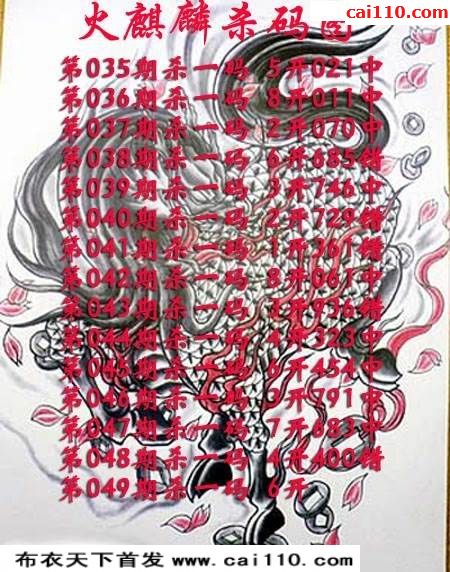 cai110.com
火麒麟杀码图
第035期杀一码 5开021中
第036期杀一码 8开011中
第037期杀一码 2开070中
第038期杀一码 6开685错
第039期杀一码 3开746中
第040期杀一码 2开729错
第041期杀一码 1开361错
第042期杀一码 8开061中
第043期杀一码 开936错
第044期杀一码 4开323中
第045期杀一码 6开454中
第046期杀一码 开791中
第047期杀一码 7开683中
第048期杀一码 4开400错
第049期杀一码 6开
布衣天下首发 www.cai110.com